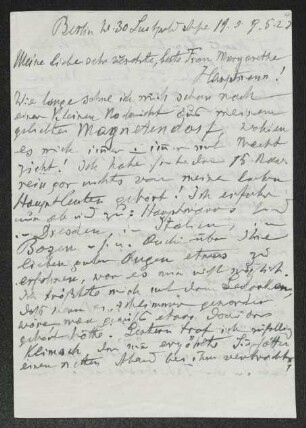 Berlin W. 30 Luitpold Str 19. 9.5.27
Meine liebe sehr verehrte, beste Frau Margarethe
Hauptmann!
Wie lange sehne ich mich schon nach
einer kleinen Nachricht aus meinem
geliebten Magnetendorf, wohin
es mich immer – immer mit Macht
zieht! Ich habe seit dem 15 Nov
rein gar nichts von meinen lieben
Hauptleuten gehört! Ich erfuhr
nur ab u zu: Hauptmanns sind
in Dresden, in Italien, in
Bozen – Auch über Ihre
lieben guten Augen etwas zu
erfahren, war es mir nicht möglich.
Ich tröstete mich mit dem Gedanken,
daß wenn es schlimmer geworden
wäre man gewiß etwas davon
gehört hätte. Gestern traf ich zufällig
Klimsch der mir erzählte Sie hätten
einen netten Abend bei ihm verbracht